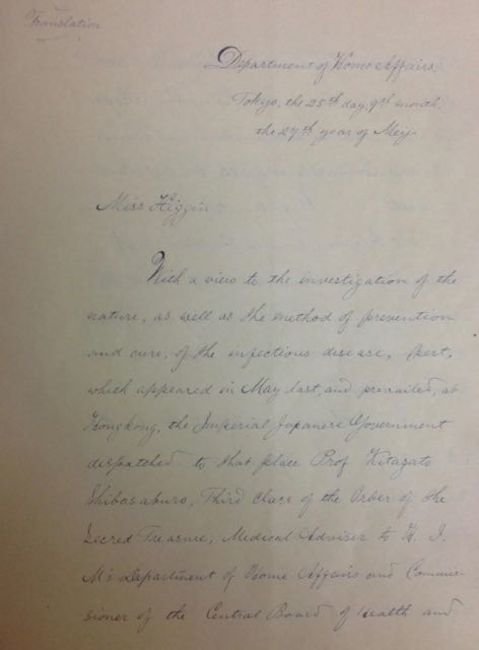 Translation
Department of Home Affairs,
Tokyo, the 25th day, 9th month,
the 27th year of Meiji.
Miss Higgin
With a view to the investigation of the
nature, as well as the method of prevention
and cure, of the infectious disease, Pest,
which appeared in May last, and prevailed, at
Hongkong, the Imperial Japanese Government
dispatched to that place Prof Kitazato
Shibasaburo, Third Class of the Order of the
Sacred Treasure, Medical Adviser to H. I.
M's Department of Home Affairs and Commis-
sioner of the Central Board of Health and